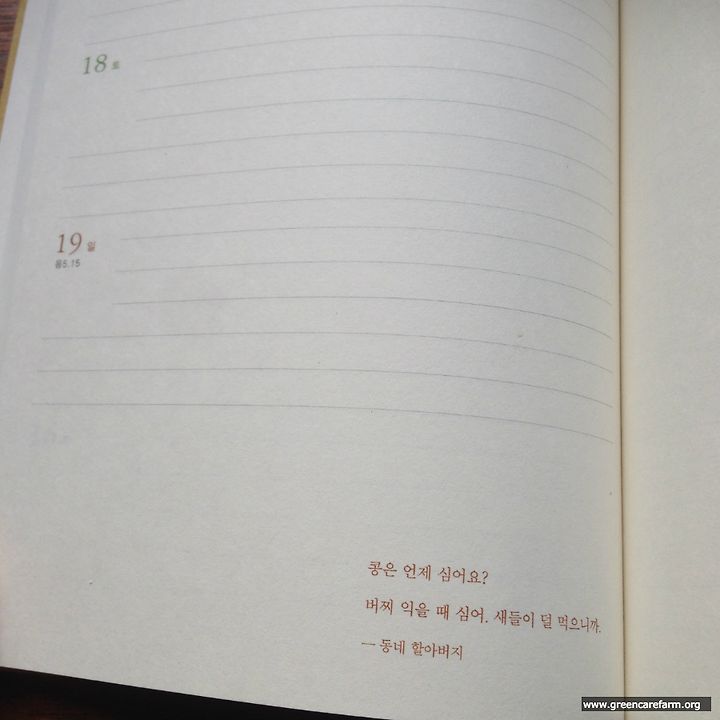 18 토
19 일
음5.15
콩은 언제 심어요?
버찌 익을 때 심어. 새들이 덜 먹으니까.
— 동네 할아버지
www.greencarefarm.org